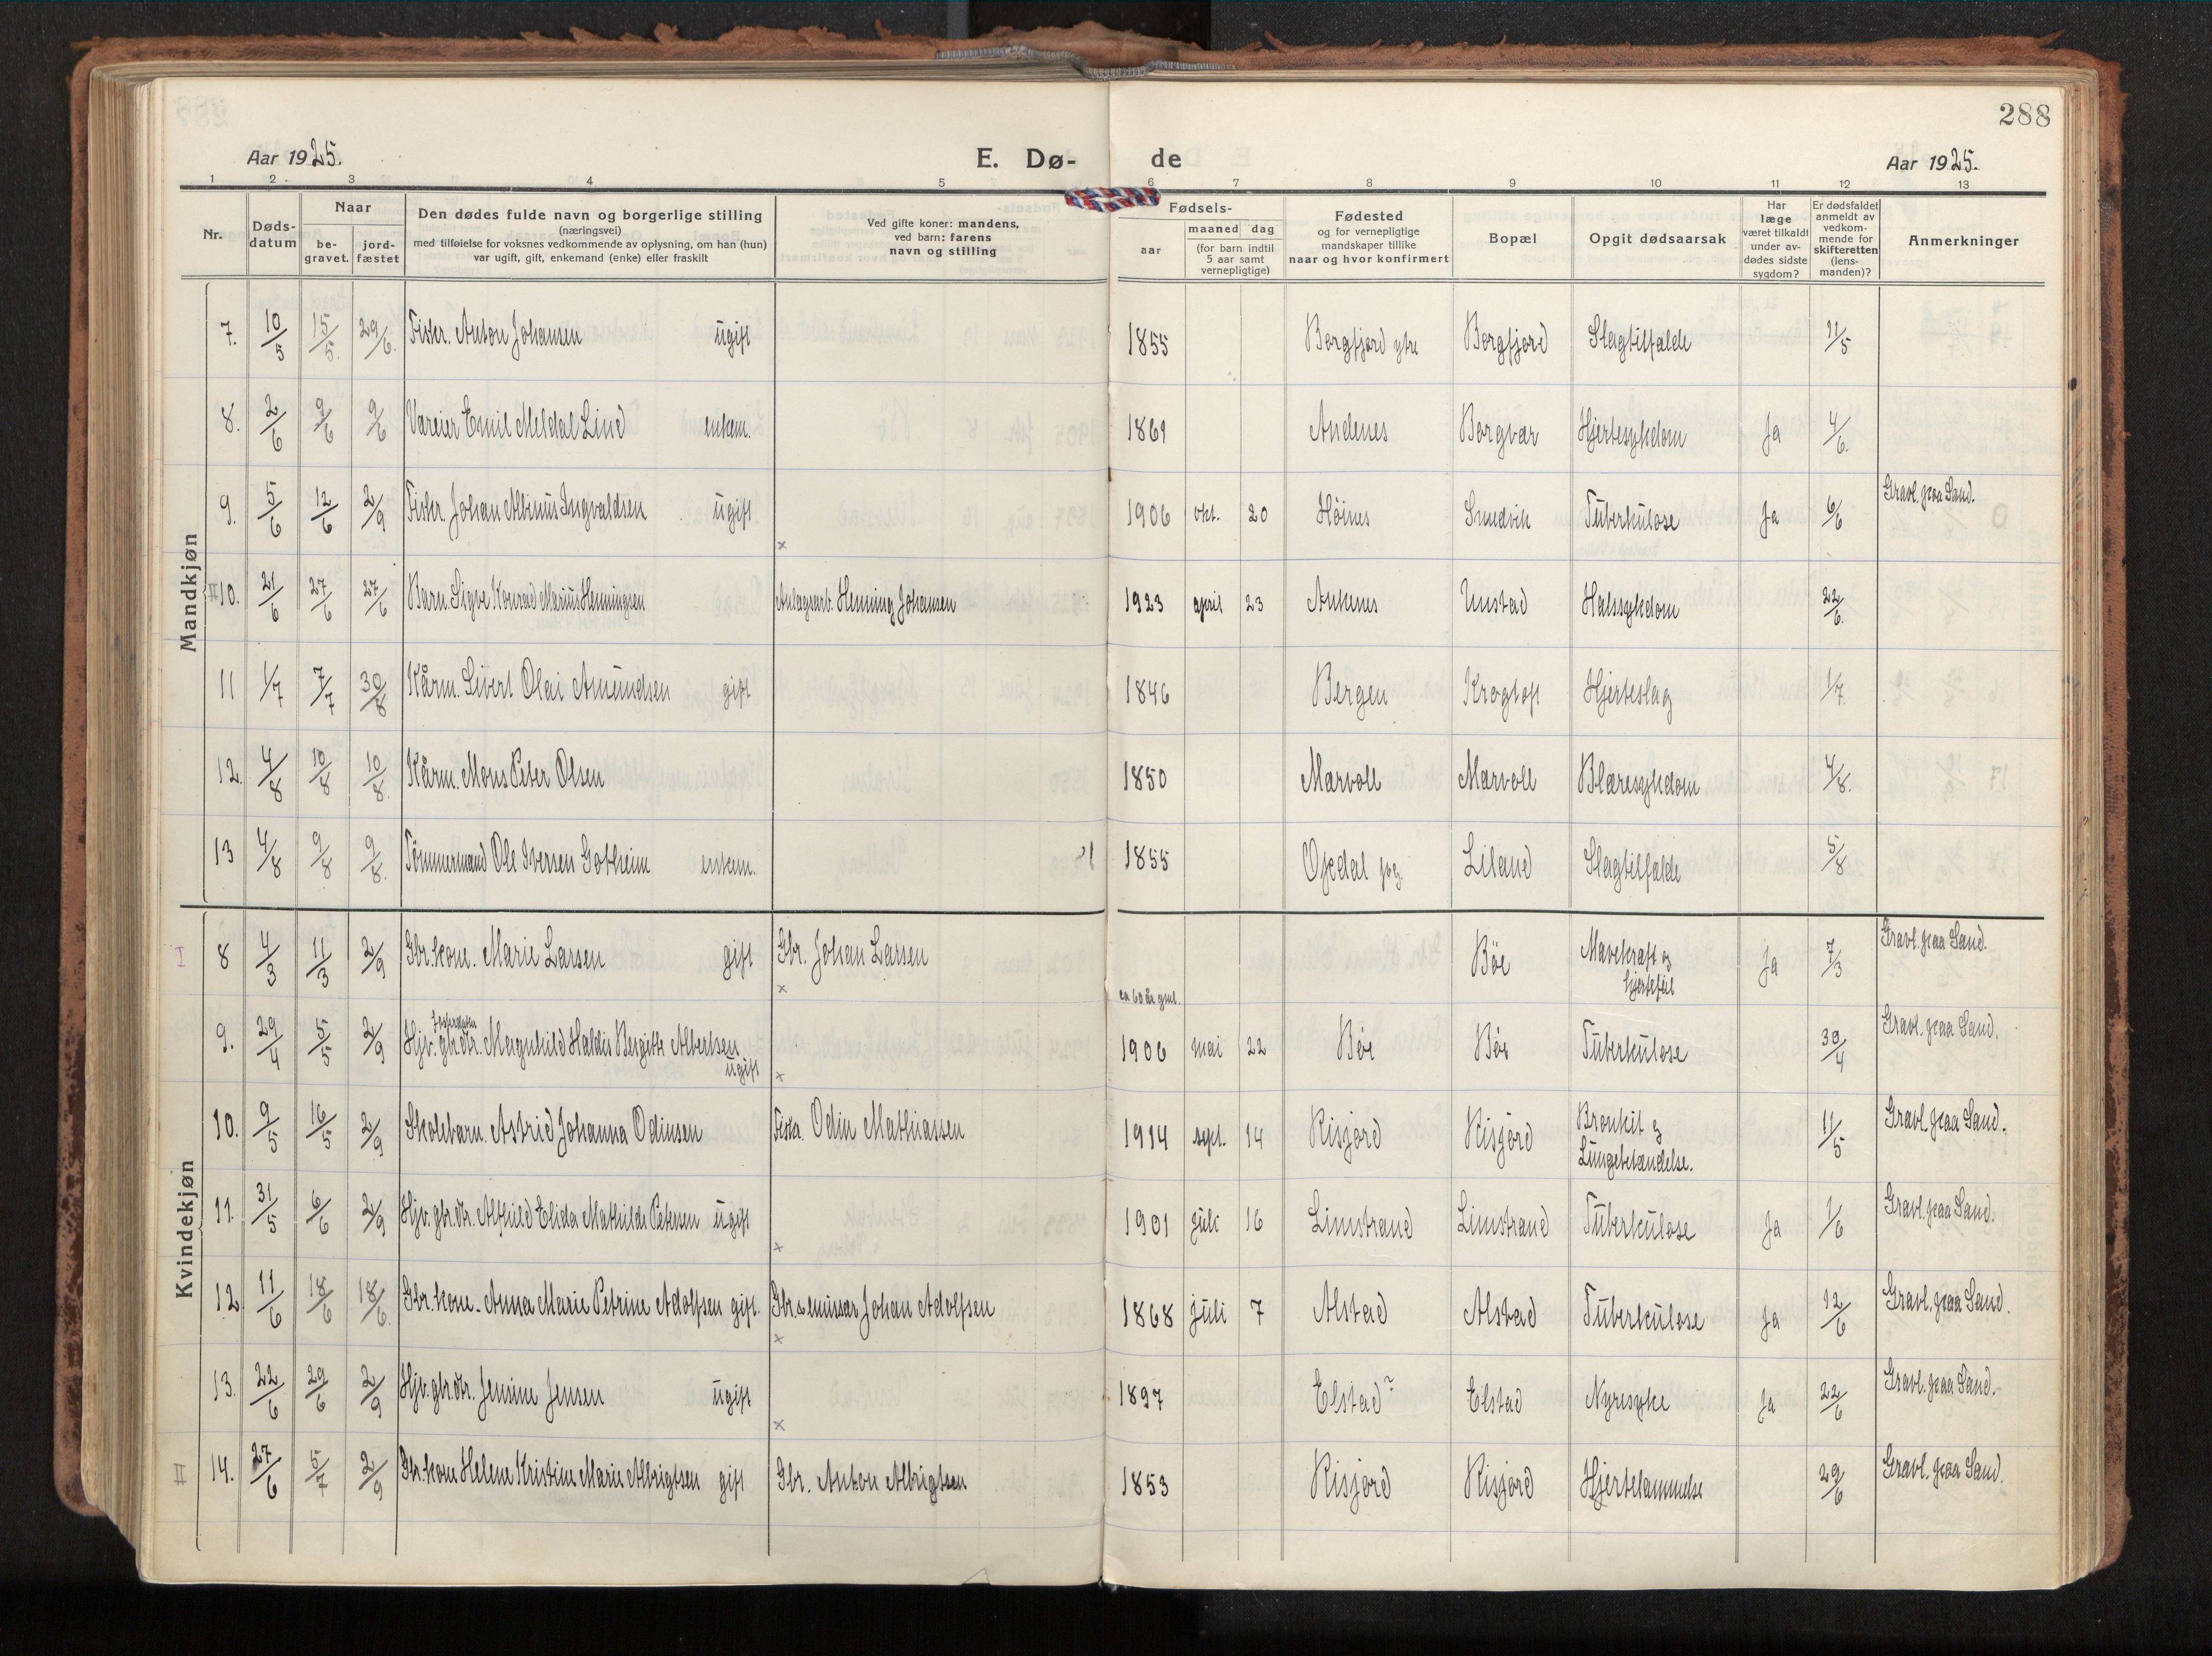 288
Aar 1925.
E. Dø-
de
Aar 1925.
1 2 3 4 5 6 7 8 9 10 11 12 13
Nr.
Døds-
datum
Naar
be-
gravet.
jord-
fæstet
Den dødes fulde navn og borgerlige stilling
(næringsvei)
med tilføielse for voksnes vedkommende av oplysning, om han (hun)
var ugift, gift, enkemand (enke) eller fraskilt
Ved gifte koner: mandens,
ved barn: farens
navn og stilling
Fødsels-
aar
maaned dag
(for barn indtil
5 aar samt
vernepligtige)
Fødested
og for vernepligtige
mandskaper tillike
naar og hvor konfirmert
Bopæl
Opgit dødsaarsak
Har
læge
været tilkaldt
under av-
dødes sidste
sygdom?
Er dødsfaldet
anmeldt av
vedkom-
mende for
skifteretten
(lens-
manden)?
Anmerkninger
Mandkjøn
7. 10/5 15/5. 29/6. Fisker. Anton Johansen ugift 1855 Borgfjord ytre Borgfjord Slagtilfælde 11/5
8. 2/6 9/6 9/6 Væreier Emil Meldal Lind enkem. 1861 Andenes Borgvær Hjertesykdom Ja 4/6.
9. 5/6 12/6 2/9 Fisker Johan Albinus Ingvaldsen ugift x 1906 okt. 20 Høines Sundvik Tuberkulose Ja 6/6 Gravl. paa Sand.
#10. 21/6 27/6 27/6 Barn. Sigve Konrad Marius Henningsen Anlægsarb. Henning Johansen 1923 april 23 Ankenes Unstad Halssykdom 22/6.
11 1/7 7/7 30/8 Kårm. Sivert Olai Amundsen gift 1846 Bergen Krogtoft Hjerteslag 1/7.
12. 4/8 10/8 10/8. Kårm. Mons Peter Olsen 1850 Marvoll Marvoll Blæresykdom 4/8.
13 4/8 9/8 9/8. Tømmermand Ole Iversen Gotheim enkem. 1855 Opdal pg. Liland Slagtilfælde 5/8
Kvindekjøn
I 8 4/3 11/3 2/9 Gbr. kone. Marie Larsen gift Gbr. Johan Larsen x ca 60 år gml. Bøe Mavekræft og Ja 7/3 Gravl. paa Sand.
hjertefeil
9. 29/4 5/5 2/9 Hjv. gbr. dtr. Magnhild Haldis Bergitte Albertsen x 1906 mai 22 Bøe Bøe Tuberkulose 30/4 Gravl. paa Sand.
ugift
10. 9/5 16/5 2/9 Skolebarn. Astrid Johanna Odinsen Fisker. Odin Mathiassen 1914 sept. 14 Risjord Risjord Bronkit og 11/5 Gravl. paa Sand.
Lungebetændelse.
11. 31/5 6/6 2/9 Hjv. gbr. dtr. Alfhild Elida Mathilde Petersen ugift x 1901 juli 16 Limstrand Limstrand Tuberkulose Ja 1/6 Gravl. paa Sand.
12. 11/6 18/6 18/6. Gbr. kone. Anna Marie Petrine Adolfsen gift. Gbr. emissær Johan Adolfsen x 1868 juli 7 Alstad Alstad Tuberkulose Ja 12/6 Gravl. paa Sand.
13. 22/6 29/6 2/9 Hjv. gbr. dtr. Jensine Jensen ugift x 1897 Elstad ? Elstad Nyresyke Ja 22/6 Gravl. paa Sand.
II 14. 27/6 5/7 2/9 Gbr. kone Helene Kristine Marie Albrigtsen gift Gbr. Anton Albrigtsen 1853 Risjord Risjord Hjertelammelse 29/6 Gravl. paa Sand.